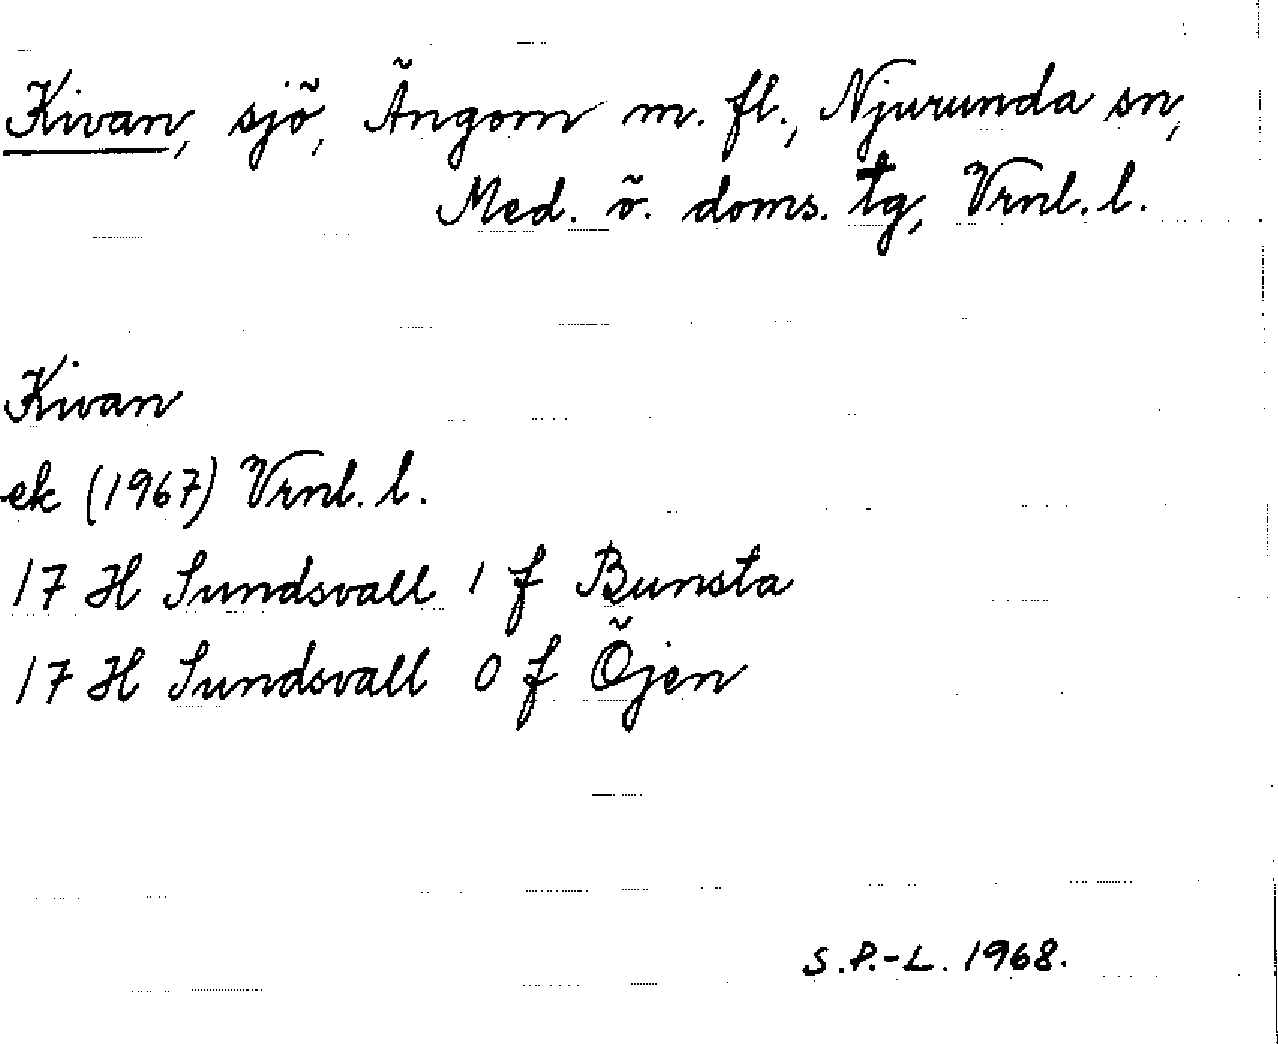 Kivan, sjö, Ängom m. fl., Njurunda sn,
Med. ö. doms. tg, Vrnl. l.
Kivan
ek (1967) Vrnl. l.
17 H Sundsvall 1 f Bunsta
17 H Sundsvall 0 f Öjen
S.P.-L. 1968.